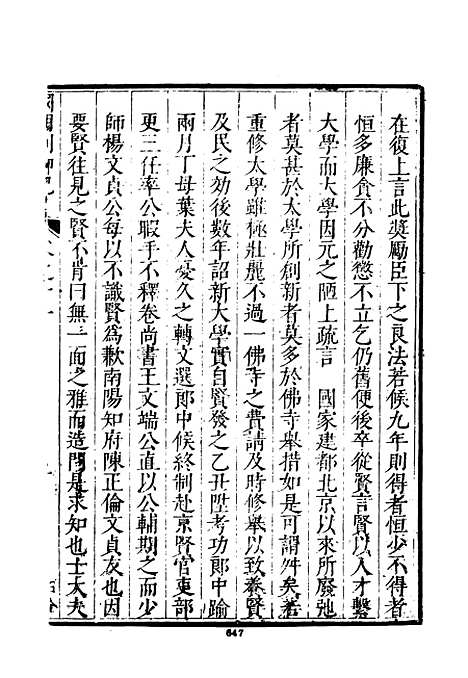 在復上言此奬勵臣下之良法若候九年則得者恒少不得者
恒多廉貪不分勸懲不立乞仍舊便後卒從賢言賢以人才繫
大學而大學因元之陋上疏言　國家建都北京以來所廢弛
者莫甚於太學所創新者莫多於佛寺舉措如是可謂舛矣若
重修太學雖極壯麗不過一佛寺之費請及時修舉以致養賢
及民之効後數年詔新大學實自賢發之乙丑陞考功郎中踰
兩月丁母葉夫人憂久之轉文選郎中候終制赴京賢官吏部
更三任率公暇手不釋卷尚書王文端公直以公輔期之而少
師楊文貞公毎以不識賢爲歉南陽知府陳正倫文貞友也因
要賢往見之賢不肯曰無一面之雅而造門是求知也士大夫
647